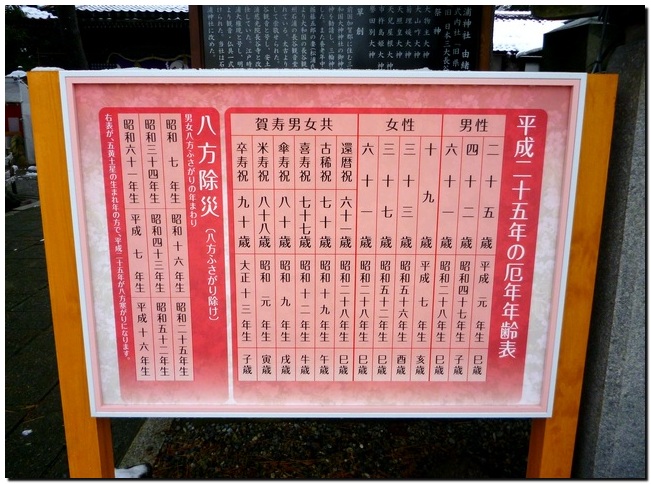 平成二十五年の厄年年齢表
男性
二十五歳 平成元年生 巳歳
四十二歳 昭和四十七年生 子歳
六十一歳 昭和二十八年生 巳歳
女性
十九歳 平成七年生 亥歳
三十三歳 昭和五十六年生 酉歳
三十七歳 昭和五十二年生 巳歳
六十一歳 昭和二十八年生 巳歳
賀寿男女共
還暦祝 六十一歳 昭和二十八年生 巳歳
古稀祝 七十歳 昭和十九年生 午歳
喜寿祝 七十七歳 昭和十二年生 牛歳
傘寿祝 八十歳 昭和九年生 戌歳
米寿祝 八十八歳 昭和元年生 寅歳
卒寿祝 九十歳 大正十三年生 子歳
八方除災(八方ふさがり除け)
男女八方ふさがりの年まわり
昭和七年生 昭和十六年生 昭和二十五年生
昭和三十四年生 昭和四十三年生 昭和五十二年生
昭和六十一年生 平成七年生 平成十六年生
右表が、五黄土星の生まれ年の方で、平成二十五年が八方塞がりになります。